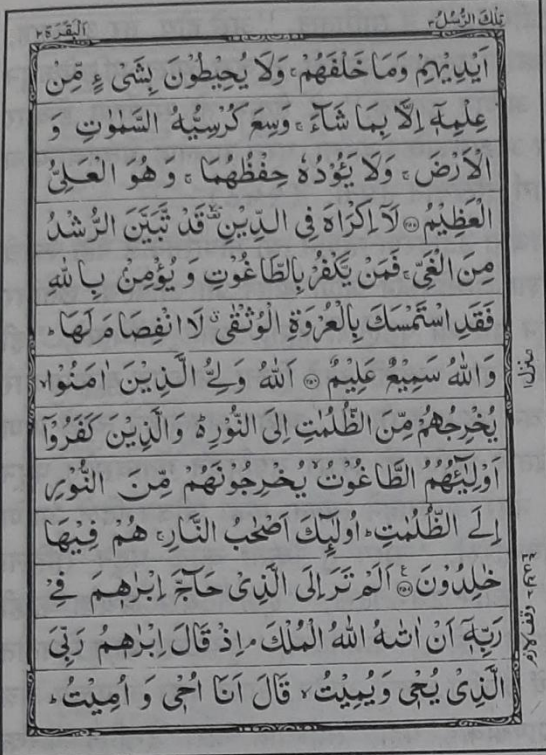 تِلْكَ الرُّسُلُ ٣
اَلْبَقَرَة ٢
اَيْدِيْهِمْ وَمَا خَلْفَهُمْ ۚ وَلَا يُحِيْطُوْنَ بِشَىْءٍ مِّنْ
عِلْمِهٖٓ اِلَّا بِمَا شَآءَ ۚ وَسِعَ كُرْسِيُّهُ السَّمٰوٰتِ وَ
الْاَرْضَ ۚ وَلَا يَـُٔوْدُهٗ حِفْظُهُمَا ۚ وَ هُوَ الْعَلِىُّ
الْعَظِيْمُ ۝٢٥٥ لَآ اِكْرَاهَ فِى الدِّيْنِ ۙ قَدْ تَّبَيَّنَ الرُّشْدُ
مِنَ الْغَىِّ ۚ فَمَنْ يَّكْفُرْ بِالطَّاغُوْتِ وَ يُؤْمِنْ بِاللّٰهِ
فَقَدِ اسْتَمْسَكَ بِالْعُرْوَةِ الْوُثْقٰى ۗ لَا انْفِصَامَ لَهَا ؕ
وَاللّٰهُ سَمِيْعٌ عَلِيْمٌ ۝٢٥٦ اَللّٰهُ وَلِىُّ الَّذِيْنَ اٰمَنُوْا ۙ
يُخْرِجُهُمْ مِّنَ الظُّلُمٰتِ اِلَى النُّوْرِ ؕ وَالَّذِيْنَ كَفَرُوْٓا
اَوْلِيٰٓـُٔهُمُ الطَّاغُوْتُ ۙ يُخْرِجُوْنَهُمْ مِّنَ النُّوْرِ
اِلَى الظُّلُمٰتِ ؕ اُولٰٓئِكَ اَصْحٰبُ النَّارِ ۚ هُمْ فِيْهَا
خٰلِدُوْنَ ۝٢٥٧ اَلَمْ تَرَ اِلَى الَّذِىْ حَآجَّ اِبْرٰهٖمَ فِىْ
رَبِّهٖٓ اَنْ اٰتٰىهُ اللّٰهُ الْمُلْكَ ۘ اِذْ قَالَ اِبْرٰهٖمُ رَبِّىَ
الَّذِىْ يُحْىٖ وَيُمِيْتُ ۙ قَالَ اَنَا اُحْىٖ وَ اُمِيْتُ ؕ
منزل ١
وقف لازم